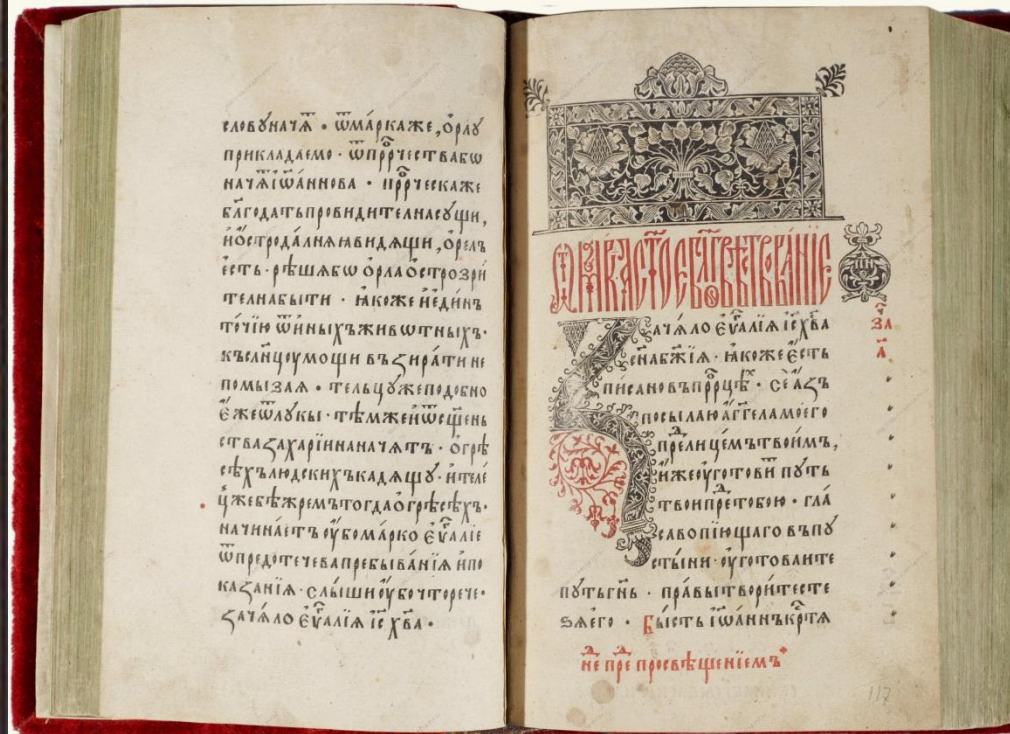 словꙋ начѧ̑ · ѿ ма́рка же, ѻ҆рлꙋ
прикладаемо · ѿ прⷪ҇рчества бѡ
нача̑ і҆ѡа́ннова · прⷪ҇рческа же
блгⷣодать провидителна сꙋщи,
и҆ ѻ҆стро далнѧꙗ видѧщи, ѻ҆релъ
єсть · рѣшѧ бѡ ѻ҆рла ѻ҆строзри
телна быти · ꙗ҆коже и҆ єди́нъ
то́чїю ѿ и҆ныхъ живѡтныхъ ·
къ слн҃цꙋ мощи възира́ти не
помызая · тельцꙋ же подобно
є҆́же ѿ лꙋкы · тѣ́мже и҆ ѿ сщ҃ень
ства заха́рїина нача́тъ · ѻ҆ грѣ
сѣ́хъ людскихъ кадѧщꙋ · и҆ теле́
ц же бѣ̀ жремъ тогда ѻ҆ грѣсѣ́хъ ·
начина́етъ ᲂу҆бо ма́рко є҆ѵⷢ҇алїе
ѿ предотечева пребыва́нїѧ и҆ по
каза́нїѧ · слы́ши ᲂу҆бо что рече ·
зача́ло є҆ѵⷢ҇алїѧ і҆с х҃ва ·
Ѿ ма́рка ст҃ое бл҃говѣствова́нїе
Зача́ло є҆ѵⷢ҇алїѧ і҆с х҃ва
сн҃а бж҃їѧ · ꙗ҆коже є҆́сть
писано въ прⷪ҇рцѣⷯ · се а҆́зъ
посылаю а҆́гг҃ела моего
преⷣ лицемъ твои́мъ,
и҆́же ᲂу҆гото́витъ пꙋть
твои преⷣ тобою · гла́
са вопїю́щаго въ пꙋ
сты́ни · ᲂу҆готоваите
пꙋть гн҃ь · пра́вы твори́те сте
зѧ̀ є҆го · Бы́сть і҆ѡа́ннъ кр҃тѧ
н҃е преⷣ просвѣще́нїемъ
пи
за
а҃
117